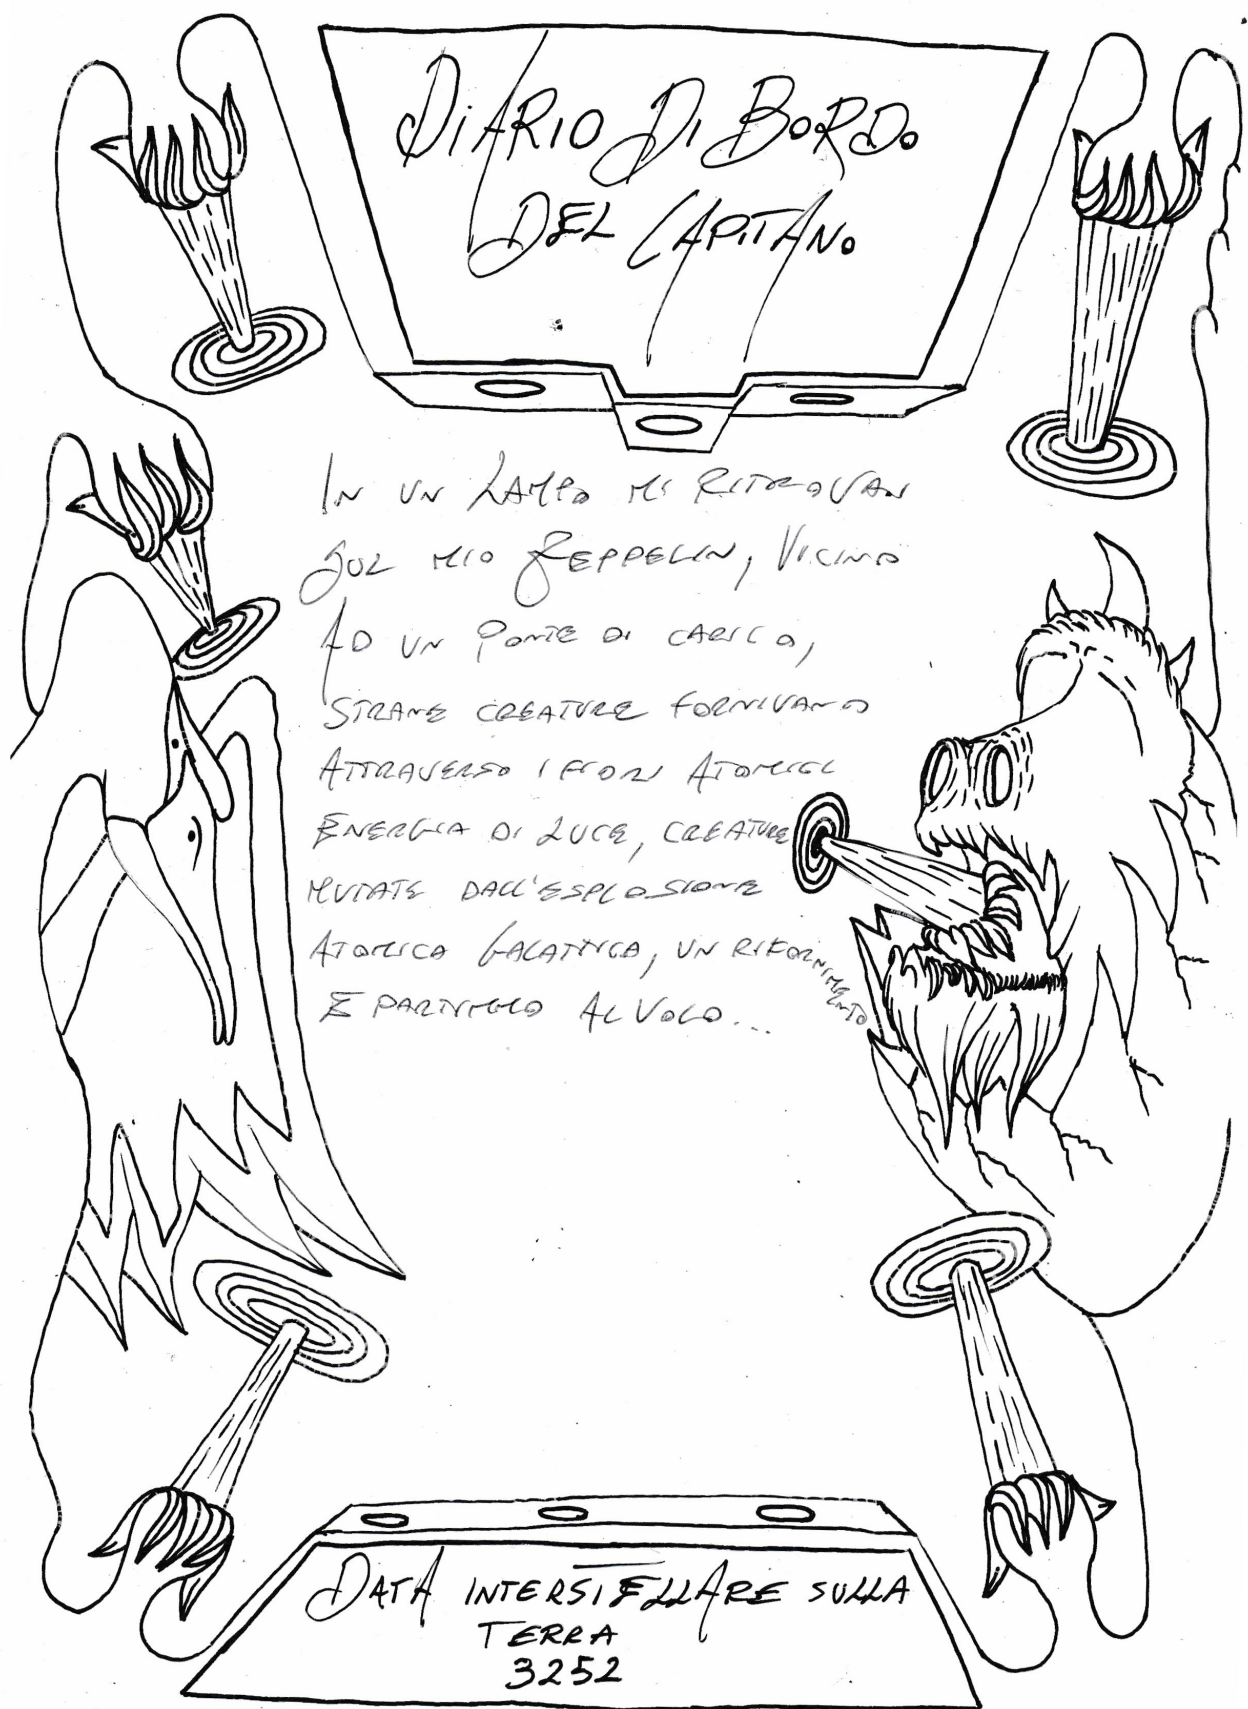 DIARIO DI BORDO
DEL CAPITANO
IN UN LAMPO MI RITROVAI
SUL MIO ZEPPELIN, VICINO
AD UN PONTE DI CARICO,
STRANE CREATURE FORNIVANO
ATTRAVERSO I FIORI ATOMICI
ENERGIA DI LUCE, CREATURE
MUTATE DALL'ESPLOSIONE
ATOMICA GALATTICA, UN RIFORNIMENTO
E PARTIMMO AL VOLO...
DATA INTERSTELLARE SULLA
TERRA
3252